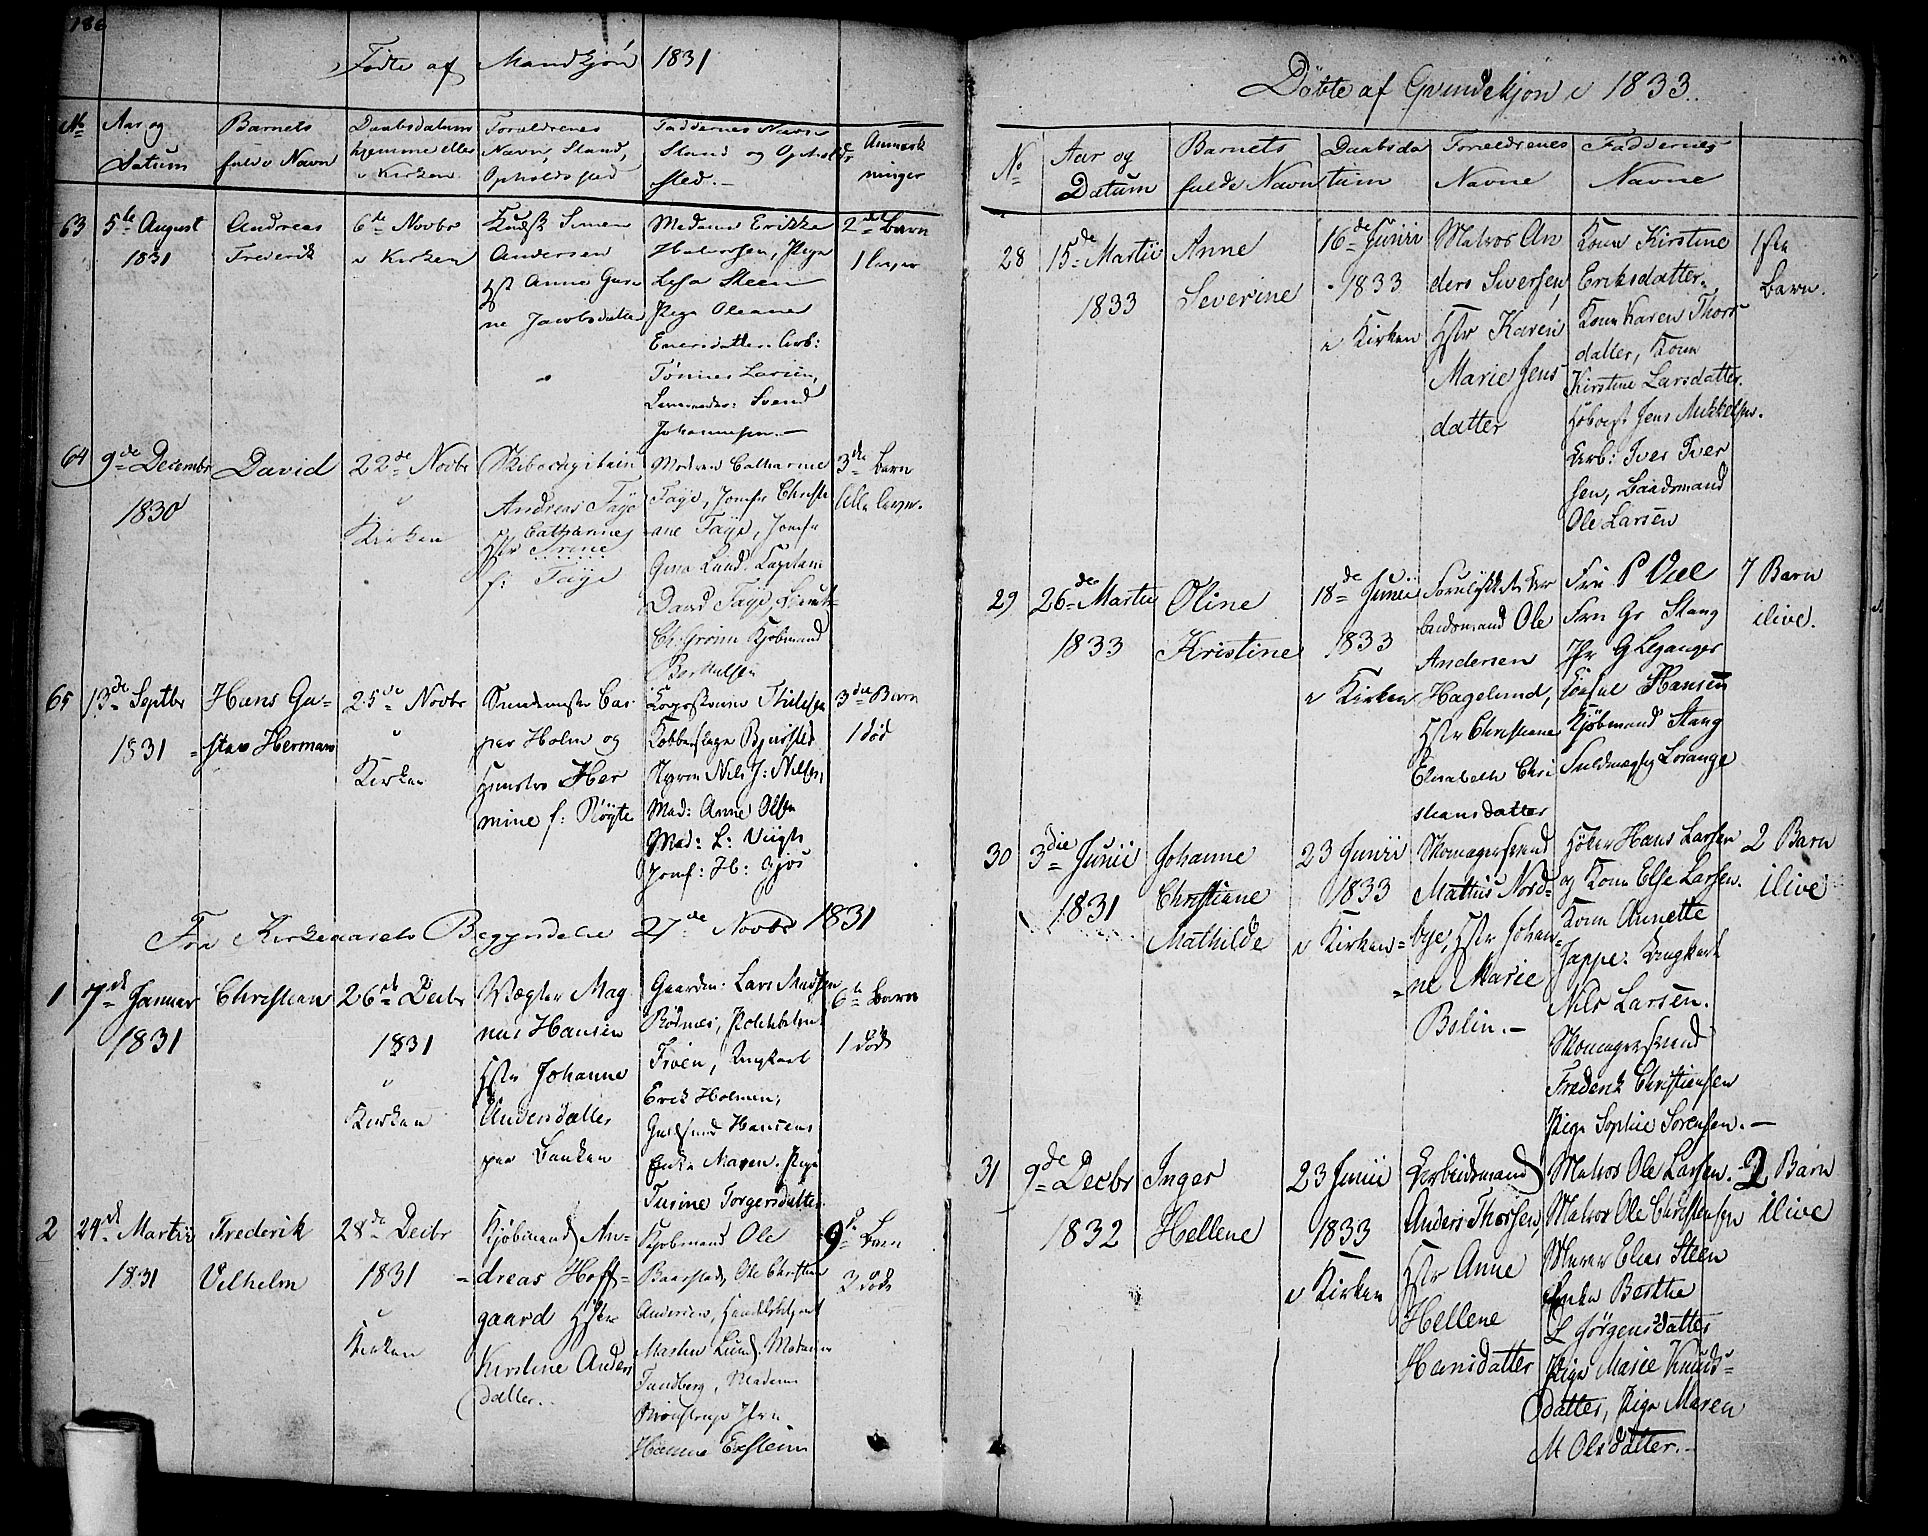 186
Födte af Mandkjön 1831
No
Aar og
Datum
Barnets
fulde Navn
Daabsdatum
hjemme eller
i Kirken
Forældrenes
Navn, Stand,
Opholdssted
Faddernes Navn
Stand og Opholds
sted.-
Anmærk
ninger
63
5te August
1831
Andreas
Frederik
6de Novbr
i Kirken
Simen
Andersen
Hst Anne Gur
ne Jacobsdatter
Madame Erikke
Halvorsen, Pige
Lysa Steen
Pige Oleane
Enersdatter. Arb:
Tönnes Larsen,
Svend
Johannesen.-
2det Barn
1 lever
64
9de Decembr
1830
David
22de Novbr
i
Kirken
Skibscapitain
Andreas Faye
Catharines
Hstr Trine
f: Faye
Madam Catharine
Faye, Jomfr Christi
ane Faye, Jomfr
Gina Lund. Capitain
David Faye, Lieut-
Kjöbmand
3die Barn
Alle lever.
65
13de Septbr
1831
Hans Gu-
stav Herman
25de Novbr
i
Kirken
Cas
per Holm og
Hustro Her
mine f: Röyte
Thilesen
Kobberslager Bjersted
Styrm Nils J: Nilsen,
Mad: Anne Olsen
Mad: L: Viigh
Jomf: H: Gjös
3die Barn
1 död
Fra Kirkeaarets Begyndelse 27de Novbr 1831
1
7de Januar
1831
Christian
26de Decbr
1831
i
Kirken
Vægter Mag
nus Hansen
Hstr Johanne
Andersdatter
paa Banken
Gaardm: Lars Knudsen
Rödnæs,
Froen, Ungkarl
Erik Holmen,
Hansens
Enke Maren. Pige
Turine Torgersdatter
6te Barn
1 död
2
24de Martii
1831
Frederik
Vilhelm
28de Decbr
1831
i
Kirken
Kjöbmand An-
dreas Hoff-
gaard Hstr
Kirstine Anders
datter..
Kjöbmand Ole
Baarstad, Ole Christian
Andersen, Handelsbetjent
Martin Lund. Madame
Tandberg, Madam
Jfru
Hanna Exstein
9de Barn
3 döde
Döbte af Qvindekjön i 1833.
No
Aar og
Datum
Barnets
fulde Navn
Daabsda
tum
Forældrenes
Navne
Faddernes
Navne
28
15de Martii
1833
Anne
Severine
16de Junii
1833
i Kirken
Matros An
ders Siversen,
Hstr Karen
Marie Jens
datter
Kone Kirstine
Eriksdatter.
Kone Karen Thors
datter, Kone
Kirstine Larsdatter.
Jens Mikkelsen.
Arb: Iver Iver
sen, Baadsmand
Ole Larsen
1ste
Barn.
29
26de Martii
1833
Oline
Kristine
18de Junii
1833
i Kirken
Forulykket Ar
beidsmand Ole
Andersen
Hagelund,
Hstr Christiane
Elisabeth Chri
stiansdatter
Fru P Vae
Fru Gr Stang
Jfr G Leganger
Consul Hansen
Kjöbmand Stang
Fuldmægtig Lorange
7 Barn
ilive.
30
3die Junii
1831
Johanne
Christiane
Mathilde
23 Junii
1833
i Kirken
Skomagersvend
Mattis Nord-
bye, Hstr Johan-
ne Marie
Bolin.-
Höker Hans Larsen
og Kone Else Larsen.
Kone Annette
Jappe. Ungkarl
Nils Larsen.
Skomagersvend
Frederik Christiansen
Pige Sophie Sörensen.-
2 Barn
ilive
31
9de Decbr
1832
Inger
Hellene
23 Junii
1833
i Kirken
Arbeidsmand
Anders Thorsen,
Hstr Anne
Hellene
Hansdatter
Matros Ole Larsen.
Matros Ole Christensen
Murer Elias Steen
Enke Berthe
L Jörgensdatter
Pige Marie Knuds-
datter, Pige Maren
M Olsdatter.-
2 Barn
ilive